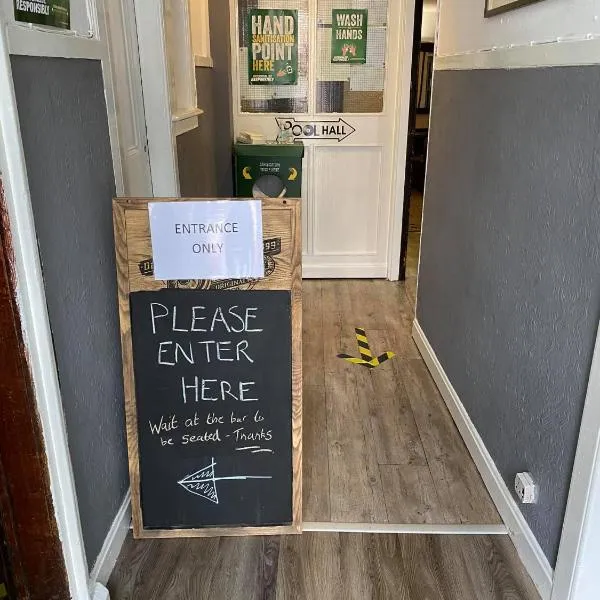 RESPONSIBLY
HAND
SANITISATION
POINT
HERE
WASH
HANDS
POOL HALL
ENTRANCE
ONLY
ORIGINAL
PLEASE
ENTER
HERE
Wait at the bar to
be seated - Thanks